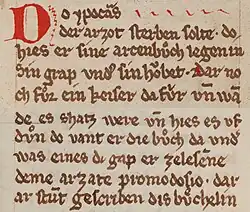 Do ypocras
der arzot sterben solte · do
hies er sine arcenbůch legen in
sin grap vnder sin hŏbet · Dar no
ch fůr ein keiser da fůr vn̄ wā
de es shatz were vn̄ hies es vf
důn do vant er die bůch da vnd
was eines di gap er zelesēne
deme arzate promodosio · dar
ar stůt gescriben dis bůchelin